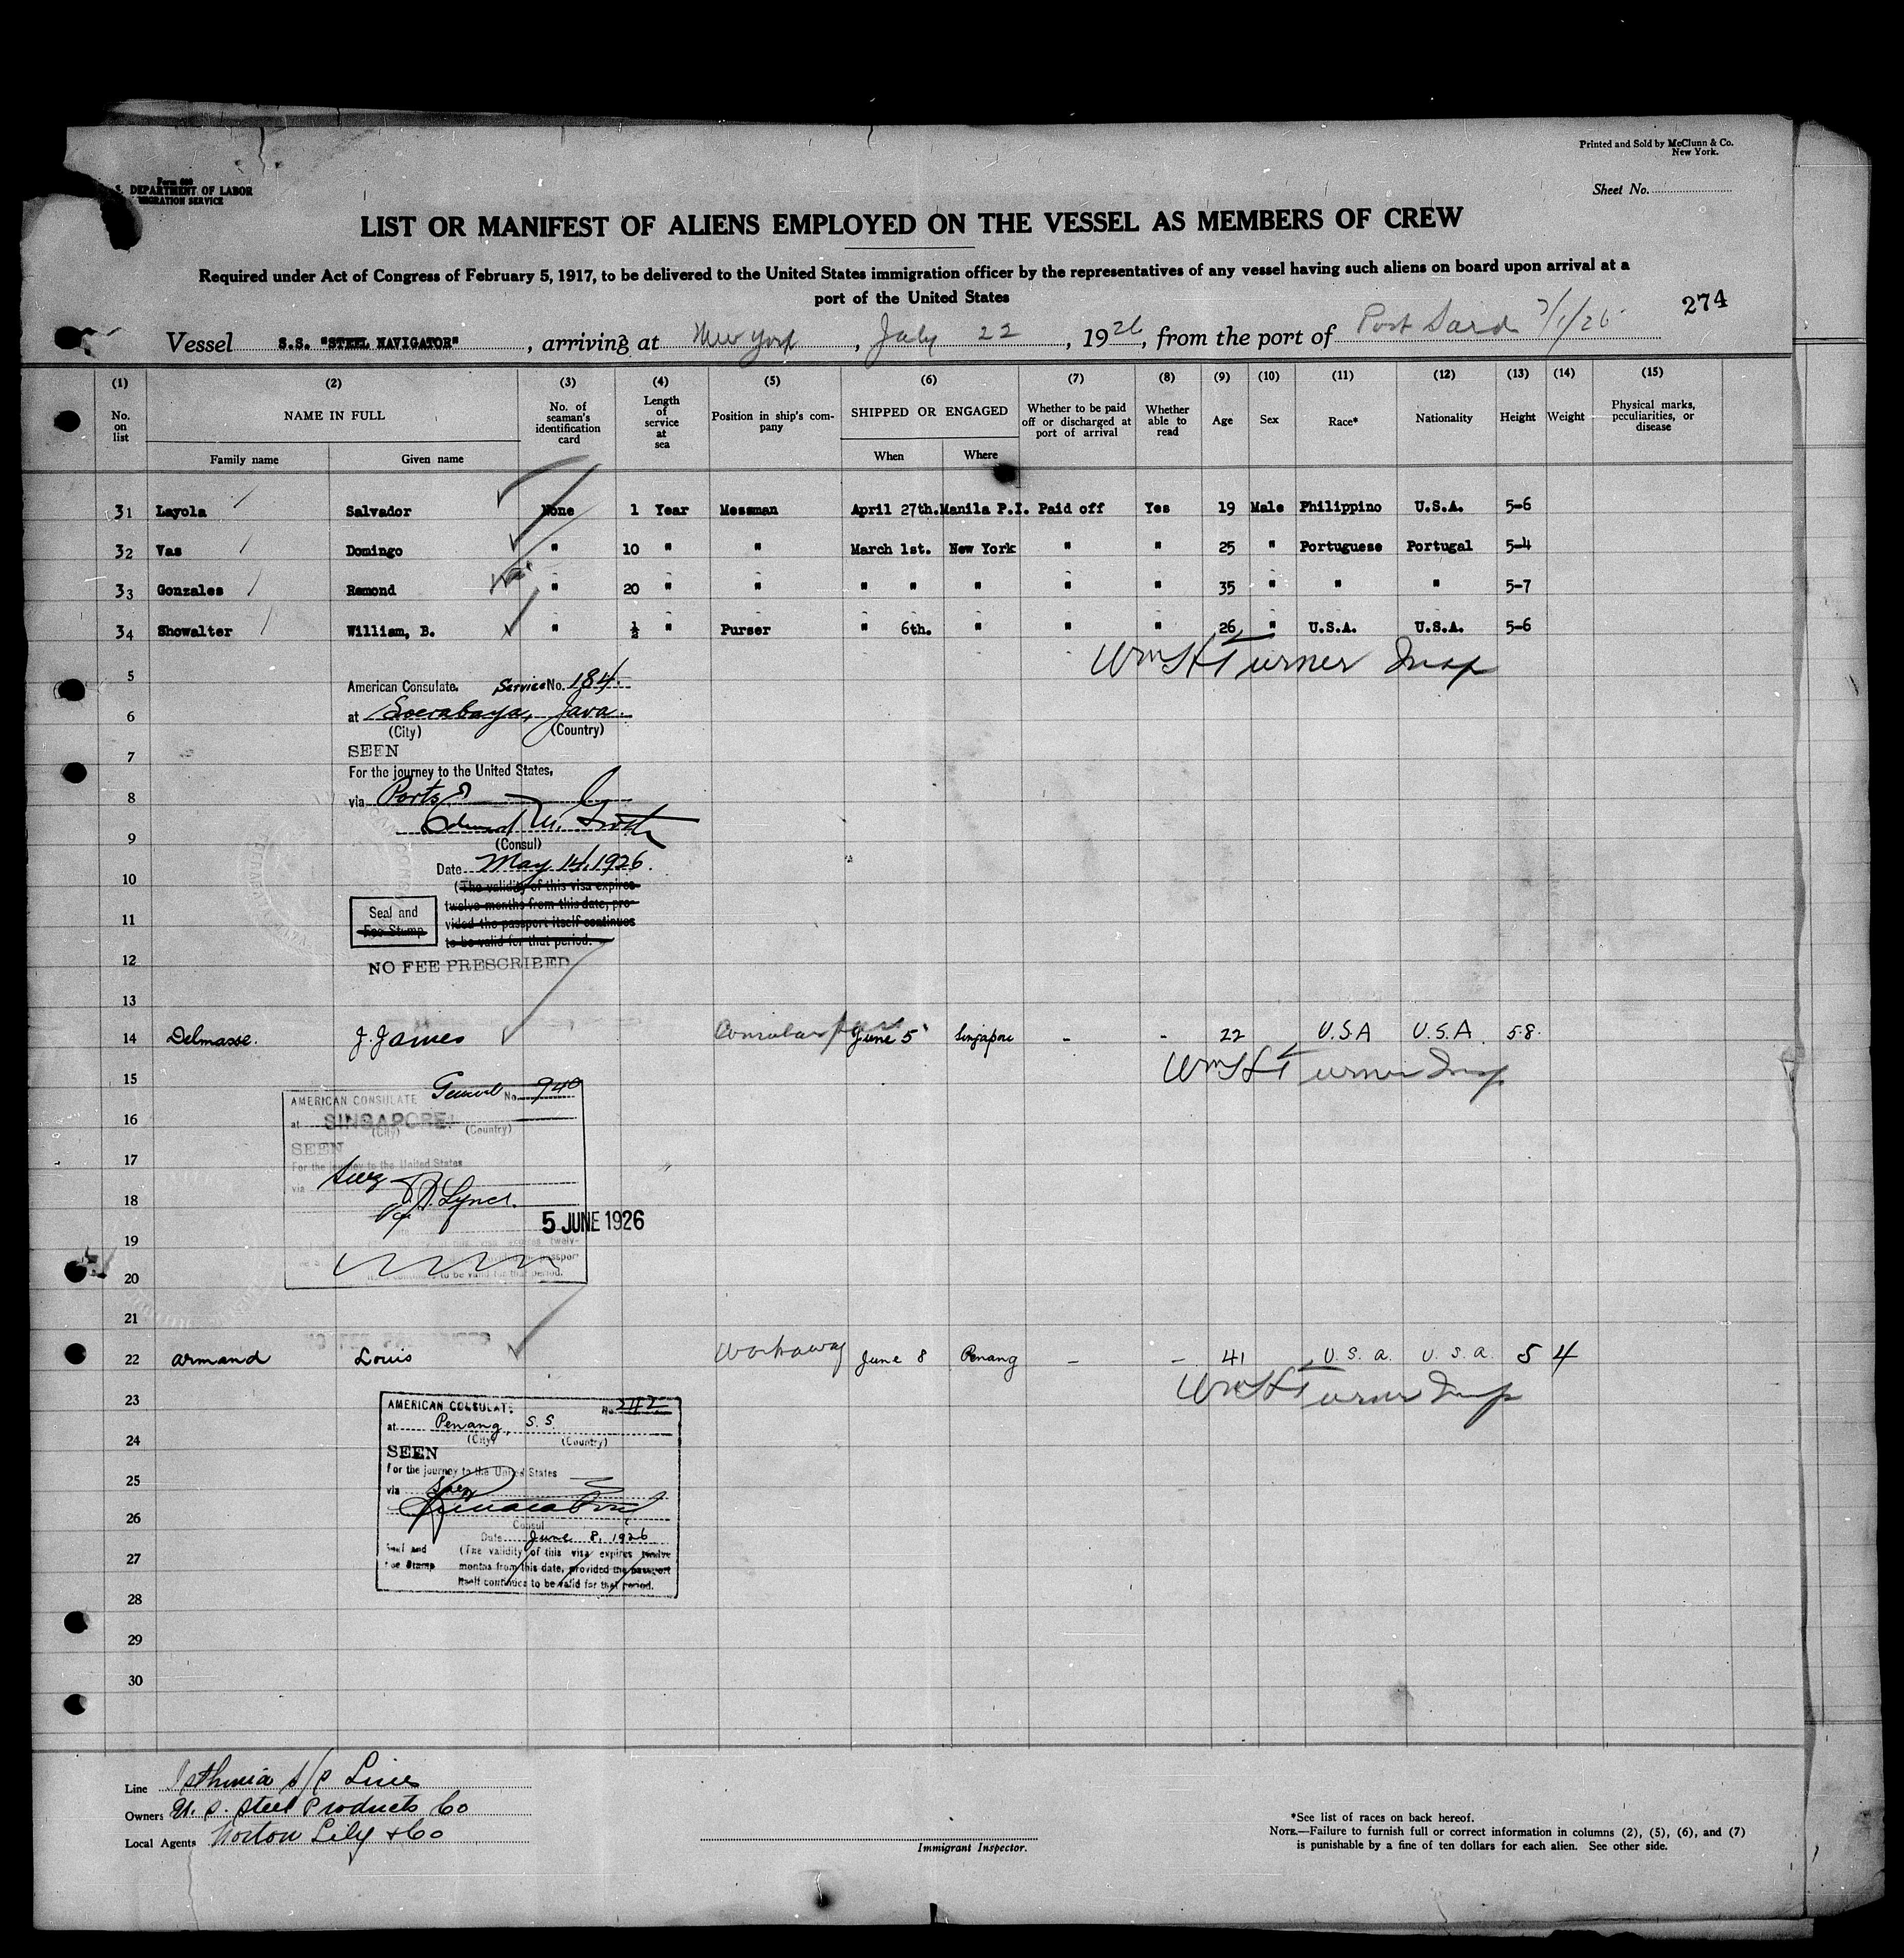 Printed and Sold by McClunn & Co.
New York.
Form 680
S. DEPARTMENT OF LABOR
MIGRATION SERVICE
Sheet No.
LIST OR MANIFEST OF ALIENS EMPLOYED ON THE VESSEL AS MEMBERS OF CREW
Required under Act of Congress of February 5, 1917, to be delivered to the United States immigration officer by the representatives of any vessel having such aliens on board upon arrival at a
port of the United States
274
Vessel S.S. "STEEL NAVIGATOR", arriving at New York, July 22, 1926, from the port of Port Said 7/1/26
(1) (2) (3) (4) (5) (6) (7) (8) (9) (10) (11) (12) (13) (14) (15)
No. on list NAME IN FULL No. of seaman's identification card Length of service at sea Position in ship's company SHIPPED OR ENGAGED Whether to be paid off or discharged at port of arrival Whether able to read Age Sex Race* Nationality Height Weight Physical marks, peculiarities, or disease
Family name Given name When Where
31 Layola Salvador None 1 Year Messman April 27th. Manila P.I. Paid off Yes 19 Male Philippino U.S.A. 5-6
32 Vas Domingo " 10 " " March 1st. New York " " 25 " Portuguese Portugal 5-4
33 Gonzales Remond " 20 " " " " " " " 35 " " " 5-7
34 Showalter William, B. " ½ " Purser " 6th. " " " 26 " U.S.A. U.S.A. 5-6
Wm H Turner Insp
5
American Consulate. Service No. 184.
6
at Soerabaya, Java.
(City) (Country)
7
SEEN
For the journey to the United States,
8
via Ports
9
(Consul)
Date May 14, 1926.
10
(The validity of this visa expires
11
Seal and Fee Stamp
twelve months from this date, pro-
vided the passport itself continues
to be valid for that period.
12
NO FEE PRESCRIBED
13
14 Delmasse. J. James Consular pass June 5 Singapore - - 22 U.S.A U.S.A. 5-8.
Wm H Turner Insp
15
AMERICAN CONSULATE General No. 940
16
at SINGAPORE
(City) (Country)
17
SEEN
For the journey to the United States
via Suez
18
5 JUNE 1926
19
20
to be valid for that period.
21
22 Armand Louis Workaway June 8 Penang - - 41 U.S.A. U.S.A. 5 4
Wm H Turner Insp
23
AMERICAN CONSULATE No. 242
at Penang, S.S.
24
(City) (Country)
SEEN
For the journey to the United States
25
via Suez
26
Consul
Date June 8, 1926
27
Seal and Fee Stamp
(The validity of this visa expires twelve
months from this date, provided the passport
itself continues to be valid for that period.
28
29
30
Line Isthmia S/S Lines
Owners U.S. Steel Products Co
Local Agents Norton Lily & Co
Immigrant Inspector.
*See list of races on back hereof.
NOTE.—Failure to furnish full or correct information in columns (2), (5), (6), and (7)
is punishable by a fine of ten dollars for each alien. See other side.